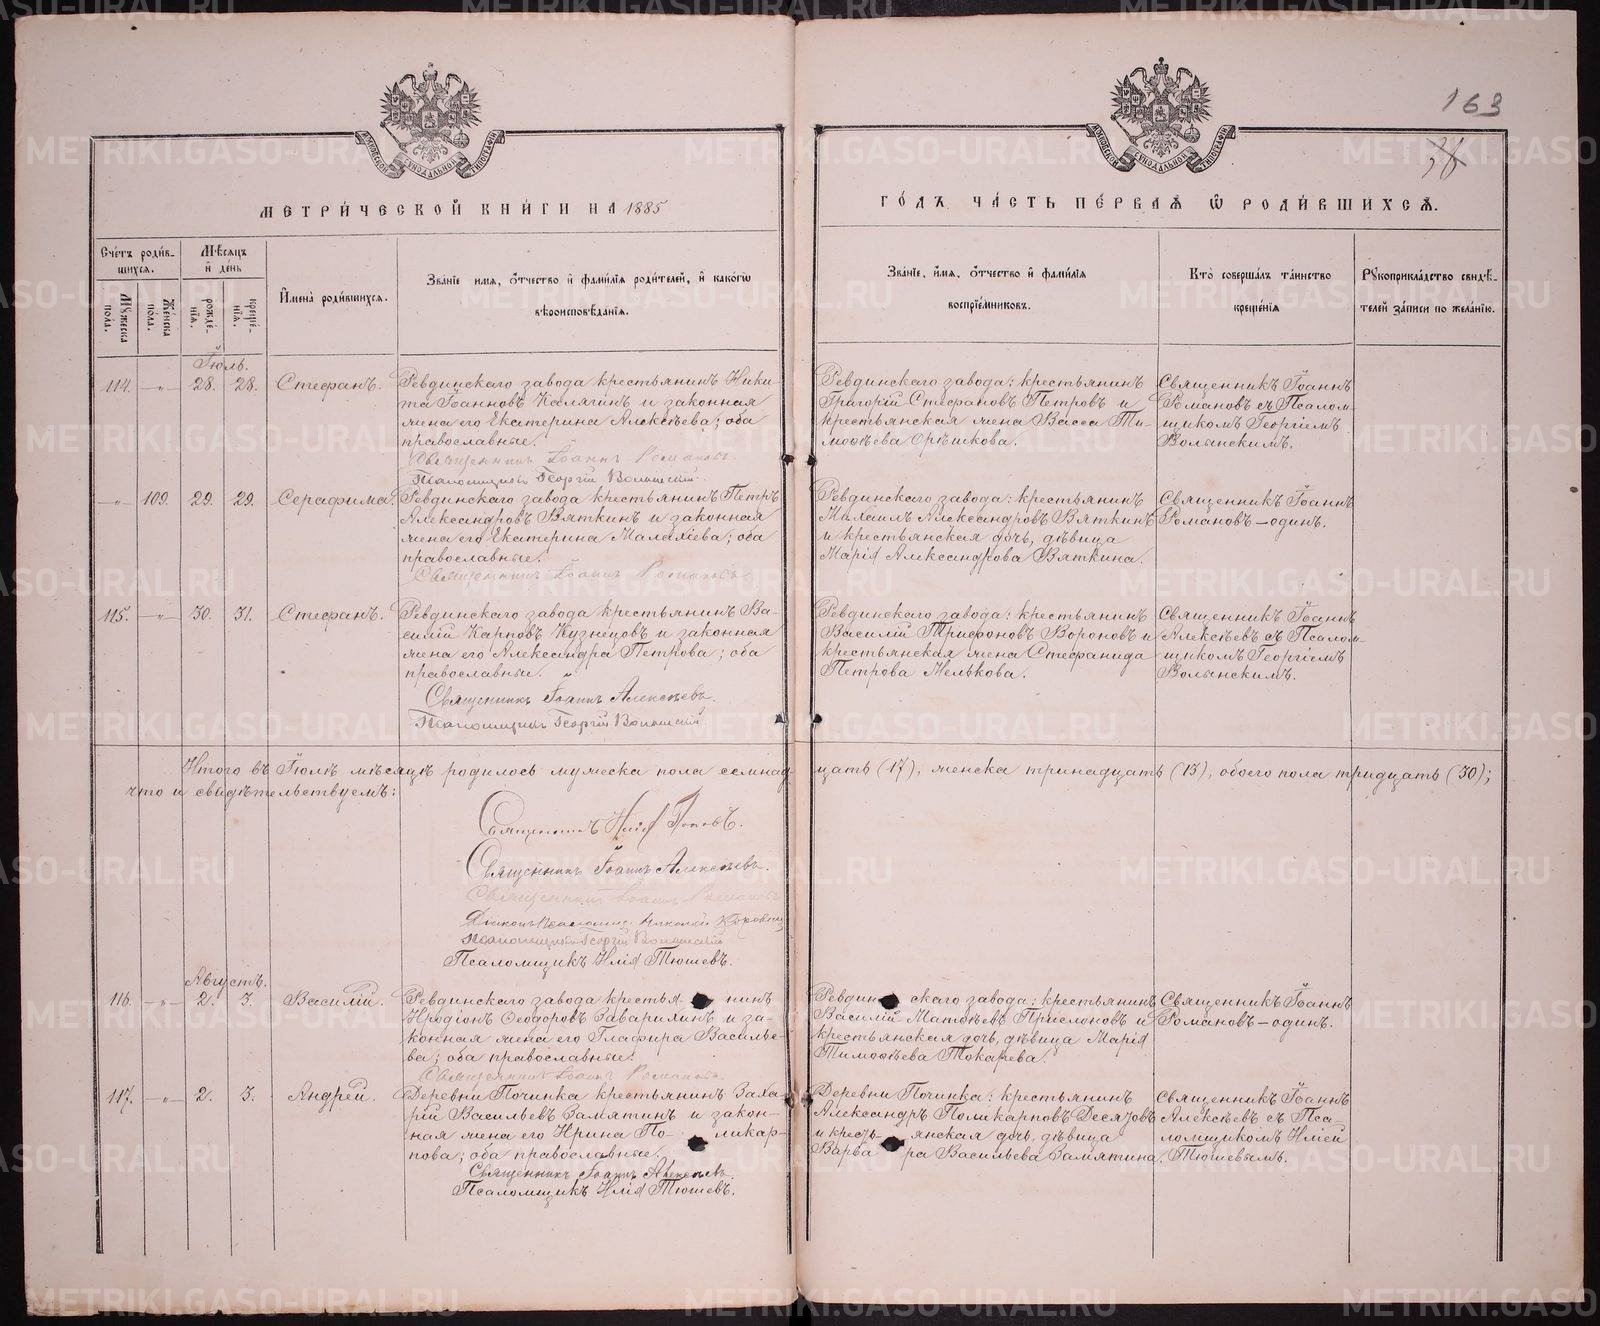 163
36
МЕТРИ́ЧЕСКОЙ КНИ́ГИ НА 1885
ГО́ДЪ ЧА́СТЬ ПЕ́РВАѦ Ѽ РОДИ́ВШИХСѦ.
Сче́тъ роди́в-
шихсѧ.
Мѣ́сѧцъ
и҆ де́нь
Мꙋжеска
по́ла.
Же́нска
по́ла.
рожде́-
нїѧ.
креще́-
нїѧ.
И҆мена̀ роди́вшихсѧ.
Зва́нїе имѧ, о҆́тчество и҆ фами́лїѧ роди́телей, и҆ како́гѡ
вѣроисповѣ́данїѧ.
Зва́нїе, и҆́мѧ, о҆́тчество и҆ фами́лїѧ
воспрїе́мниковъ.
Кто̀ соверша́лъ та́инство
креще́нїѧ
Рꙋкоприкла́дство свидѣ́-
телей за́писи по жела́нїю.
Іюль.
114. —"— 28. 28. Стефанъ.
Ревдинскаго завода крестьянинъ Ники-
та Іоанновъ Калягинъ и законная
жена его Екатерина Алексѣева; оба
православные.
Священникъ Іоаннъ Романовъ.
Псаломщикъ Георгій Волынскій.
Ревдинскаго завода: крестьянинъ
Григорій Стефановъ Петровъ и
крестьянская жена Васса Ти-
моѳѣева Орѣшкова.
Священникъ Іоаннъ
Романовъ съ Псалом-
щикомъ Георгіемъ
Волынскимъ.
—"— 109. 29. 29. Серафима.
Ревдинскаго завода крестьянинъ Петръ
Александровъ Вяткинъ и законная
жена его Екатерина Малахіева; оба
православные.
Священникъ Іоаннъ Романовъ
Ревдинскаго завода: крестьянинъ
Михаилъ Александровъ Вяткинъ
и крестьянская дочь, дѣвица
Марія Александрова Вяткина.
Священникъ Іоаннъ
Романовъ — одинъ.
115. —"— 30. 31. Стефанъ.
Ревдинскаго завода крестьянинъ Ва-
силій Карповъ Кузнецовъ и законная
жена его Александра Петрова; оба
православные.
Священникъ Іоаннъ Алексѣевъ.
Псаломщикъ Георгій Волынскій
Ревдинскаго завода: крестьянинъ
Василій Трифоновъ Вороновъ и
крестьянская жена Стефанида
Петрова Мелькова.
Священникъ Іоаннъ
Алексѣевъ съ Псалом-
щикомъ Георгіемъ
Волынскимъ.
Итого въ Іюлѣ мѣсяцѣ родилось мужеска пола семнад-
цать (17), женска тринадцать (13), обоего пола тридцать (30);
что и свидѣтельствуемъ:
Священникъ Илія Поповъ.
Священникъ Іоаннъ Алексѣевъ.
Священникъ Іоаннъ Романовъ
Псаломщикъ Георгій Волынскій
Псаломщикъ Илія Тюшевъ.
Августъ.
116. —"— 2. 3. Василій.
Ревдинскаго завода крестьянинъ
Иродіонъ Ѳеодоровъ Гаврилинъ и за-
конная жена его Глафира Василье-
ва; оба православные.
Священникъ Іоаннъ Романовъ.
Ревдинскаго завода: крестьянинъ
Василій Матвѣевъ Прислоновъ и
крестьянская дочь, дѣвица Марія
Тимоѳѣева Токарева.
Священникъ Іоаннъ
Романовъ — одинъ.
117. —"— 2. 3. Андрей.
Деревни Починка крестьянинъ Заха-
рій Васильевъ Замятинъ и закон-
ная жена его Ирина Поликар-
пова; оба православные.
Священникъ Іоаннъ Алексѣевъ.
Псаломщикъ Илія Тюшевъ.
Деревни Починка: крестьянинъ
Александръ Поликарповъ Десятовъ
и крестьянская дочь, дѣвица
Варвара Васильева Замятина.
Священникъ Іоаннъ
Алексѣевъ съ Пса-
ломщикомъ Иліей
Тюшевымъ.
METRIKI.GASO-URAL.RU